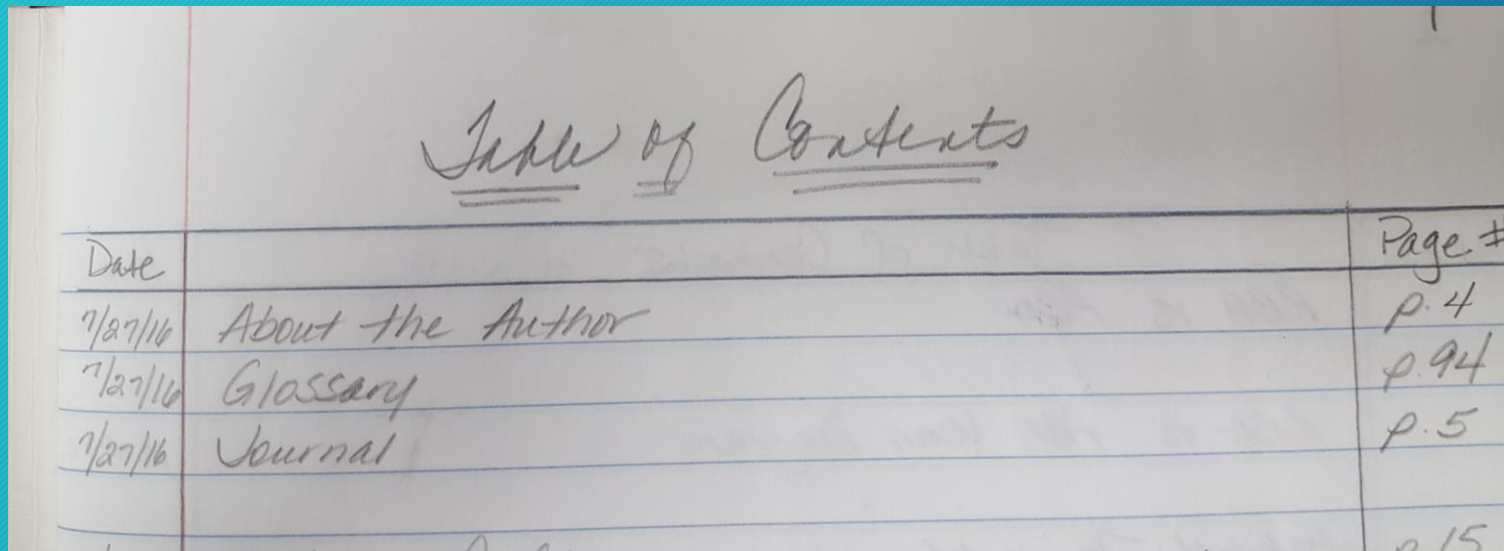 1
Table of Contents
Date Page #
7/27/16 About the Author p. 4
7/27/16 Glossary p. 94
7/27/16 Journal p. 5
p. 15